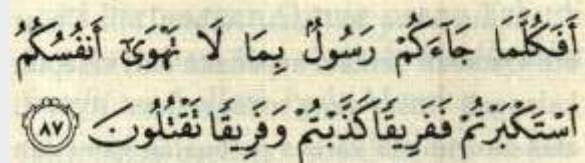 أَفَكُلَّمَا جَآءَكُمْ رَسُولٌۢ بِمَا لَا تَهْوَىٰٓ أَنفُسُكُمُ
ٱسْتَكْبَرْتُمْ فَفَرِيقًا كَذَّبْتُمْ وَفَرِيقًا تَقْتُلُونَ ٨٧